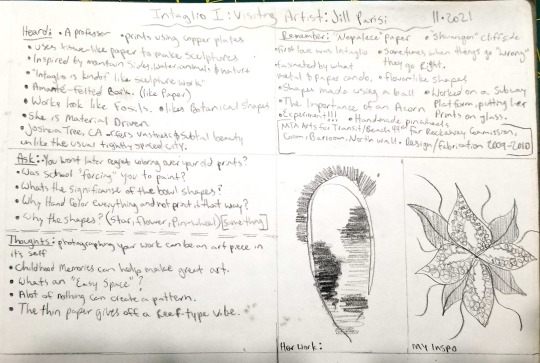 Intaglio I: Visiting Artist: Jill Parisi
11.2021
Heard: • A professor • prints using copper plates
• uses tissue-like paper to make sculptures
• Inspired by mountain sides, water, animals & nature
• "Intaglio is kinda" like sculpture work"
• Amante-felted Bark. (like Paper)
• Works look like Fossils. • likes Botanical shapes
• She is Material Driven
• Joshua Tree, CA offers Vastness & subtal beauty
unlike the usual tightly spaced city.
Remember: "Nepalece" paper • "Shawangon" cliffside
• first love was Intaglio • Sometimes when things go "wrong"
fasinated by what they go Right.
metal & paper can do. • flower like shapes
• Shapes made using a ball • Worked on a Subway
• The Importance of an Acorn Platform, putting her
• Experiment!!! Prints on glass.
• Handmade pinwheels
MTA Arts for Transit/Beach 98th for Rockaway Commission,
Com: Barroom, North wall. • Design/Fabrication 2009-2010
Ask: • You wont later regret coloring over your old prints?
• Was School "forcing" you to paint?
• Whats the significanse of the bowl shapes?
• Why Hand Color everything and not print it that way?
• Why the shapes? (Star, flower, Pin-wheel) [something]
Thoughts: • photographing your work can be an art piece in
it's self
• Childhood Memories can help make great art.
• Whats an "Easy Space"?
• Alot of nothing can create a pattern.
• The thin paper gives off a Reef-type vibe.
Her Work:
My Inspo